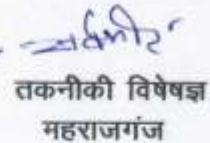 तकनीकी विषेषज्ञ
महराजगंज